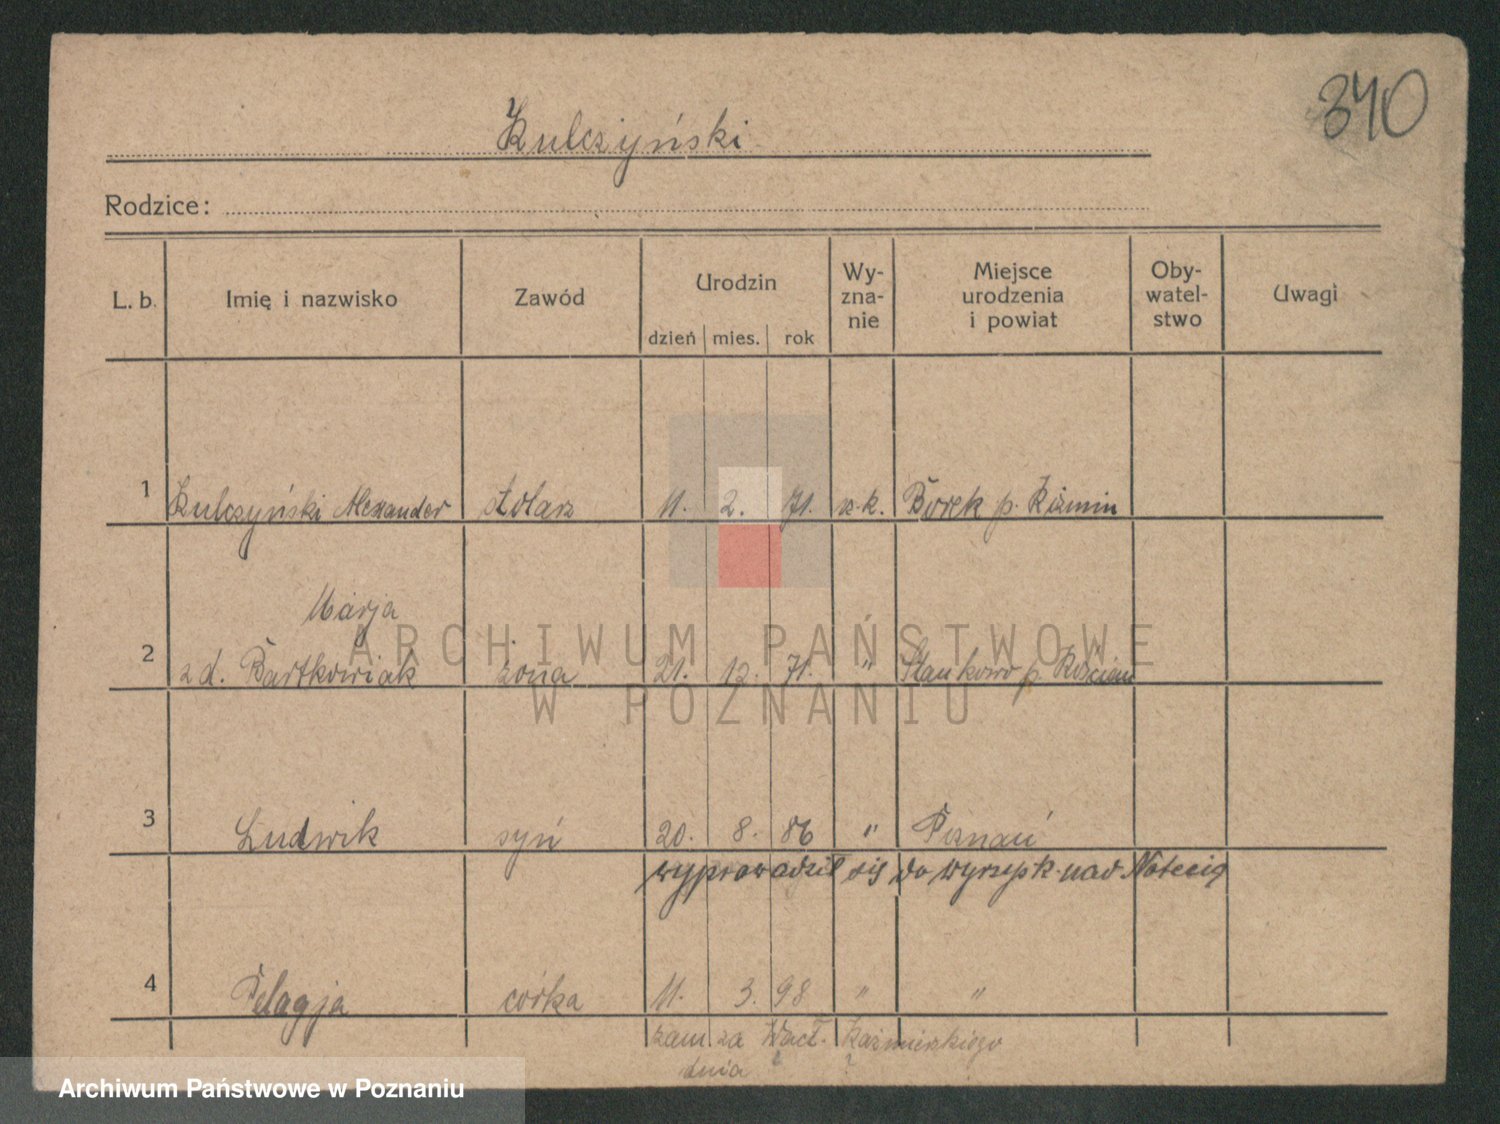 340
Kulczyński
Rodzice:
L. b. Imię i nazwisko Zawód Urodzin dzień mies. rok Wy-zna-nie Miejsce urodzenia i powiat Oby-watel-stwo Uwagi
1 Kulczyński Alexander stolarz 11. 2. 71. rz.k. Borek p. Koźmin
Marja
2 z d. Bartkowiak żona 21. 12. 71. " Stankowo p. Kościan
3 Ludwik syn 20. 8. 86 " Poznań
wyprowadził się do Wyrzysk nad Notecią
4 Pelagja córka 11. 3. 98 " "
zam. za Wacł. Kaźmierskiego
dnia ? ?
ARCHIWUM PAŃSTWOWE
W POZNANIU
Archiwum Państwowe w Poznaniu